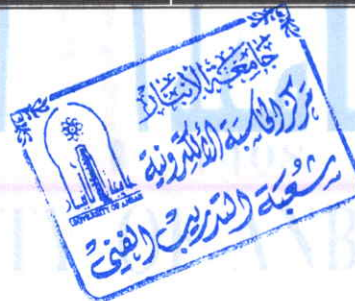 جامعة الأنبار
مركز الحاسبة الألكترونية
شعبة التدريب الفني
جامعة الانبار
UNIVERSITY OF ANBAR